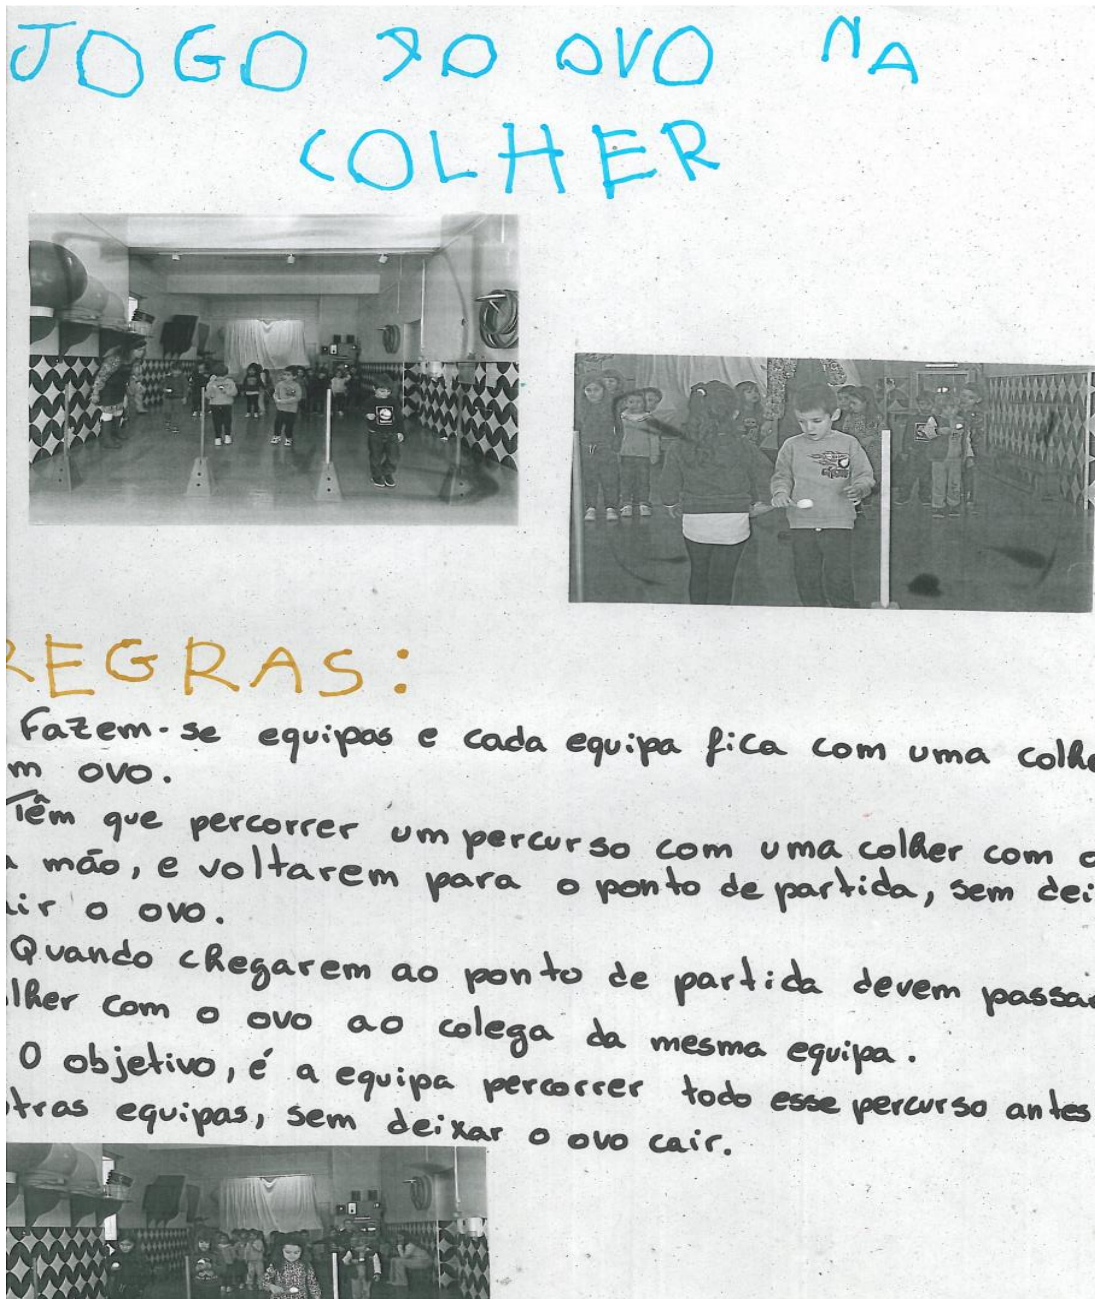 JOGO DO OVO NA
COLHER
REGRAS:
Fazem-se equipas e cada equipa fica com uma colhe
m ovo.
Têm que percorrer um percurso com uma colher com o
a mão, e voltarem para o ponto de partida, sem dei
air o ovo.
Quando chegarem ao ponto de partida devem passar
lher com o ovo ao colega da mesma equipa.
O objetivo, é a equipa percorrer todo esse percurso antes
tras equipas, sem deixar o ovo cair.